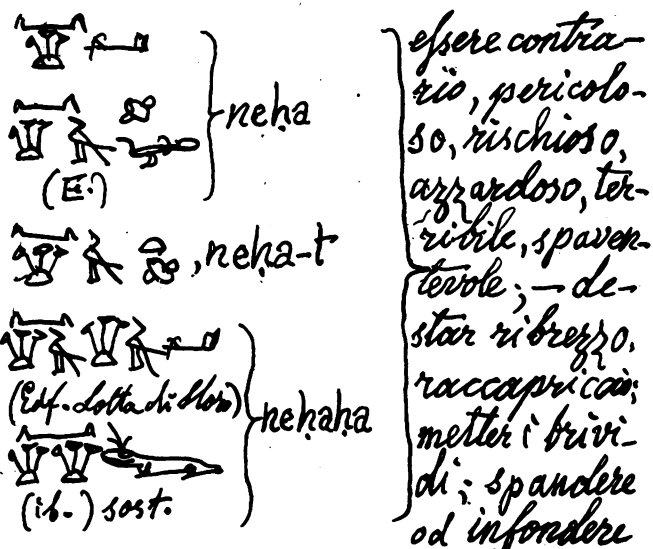 neḥa
(E.)
, neḥa-t
(Edf. Lotta di Horo)
neḥaḥa
(ib.) sost.
essere contra-
rio, pericolo-
so, rischioso,
azzardoso, ter-
ribile, spaven-
tevole; — de-
star ribrezzo,
raccapriccio;
metter i brivi-
di; spandere
od infondere